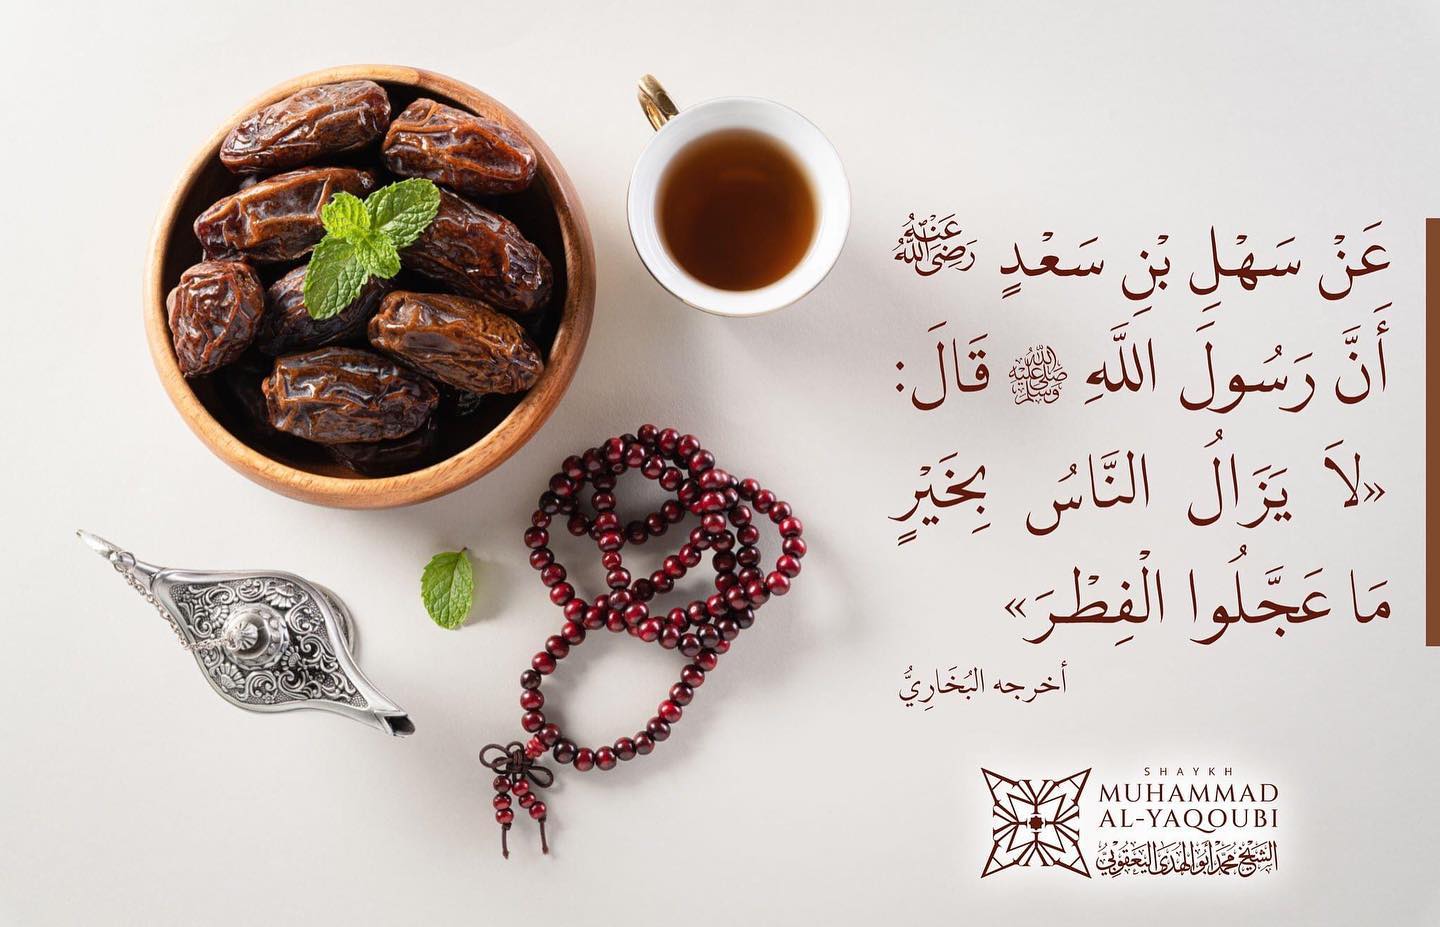 عَنْ سَهْلِ بْنِ سَعْدٍ رَضِيَ اللَّهُ عَنْهُ
أَنَّ رَسُولَ اللَّهِ ﷺ قَالَ:
«لَا يَزَالُ النَّاسُ بِخَيْرٍ
مَا عَجَّلُوا الْفِطْرَ»
أخرجه البُخَارِيُّ
SHAYKH
MUHAMMAD
AL-YAQOUBI
الشيخ محمد أبو الهدى اليعقوبي